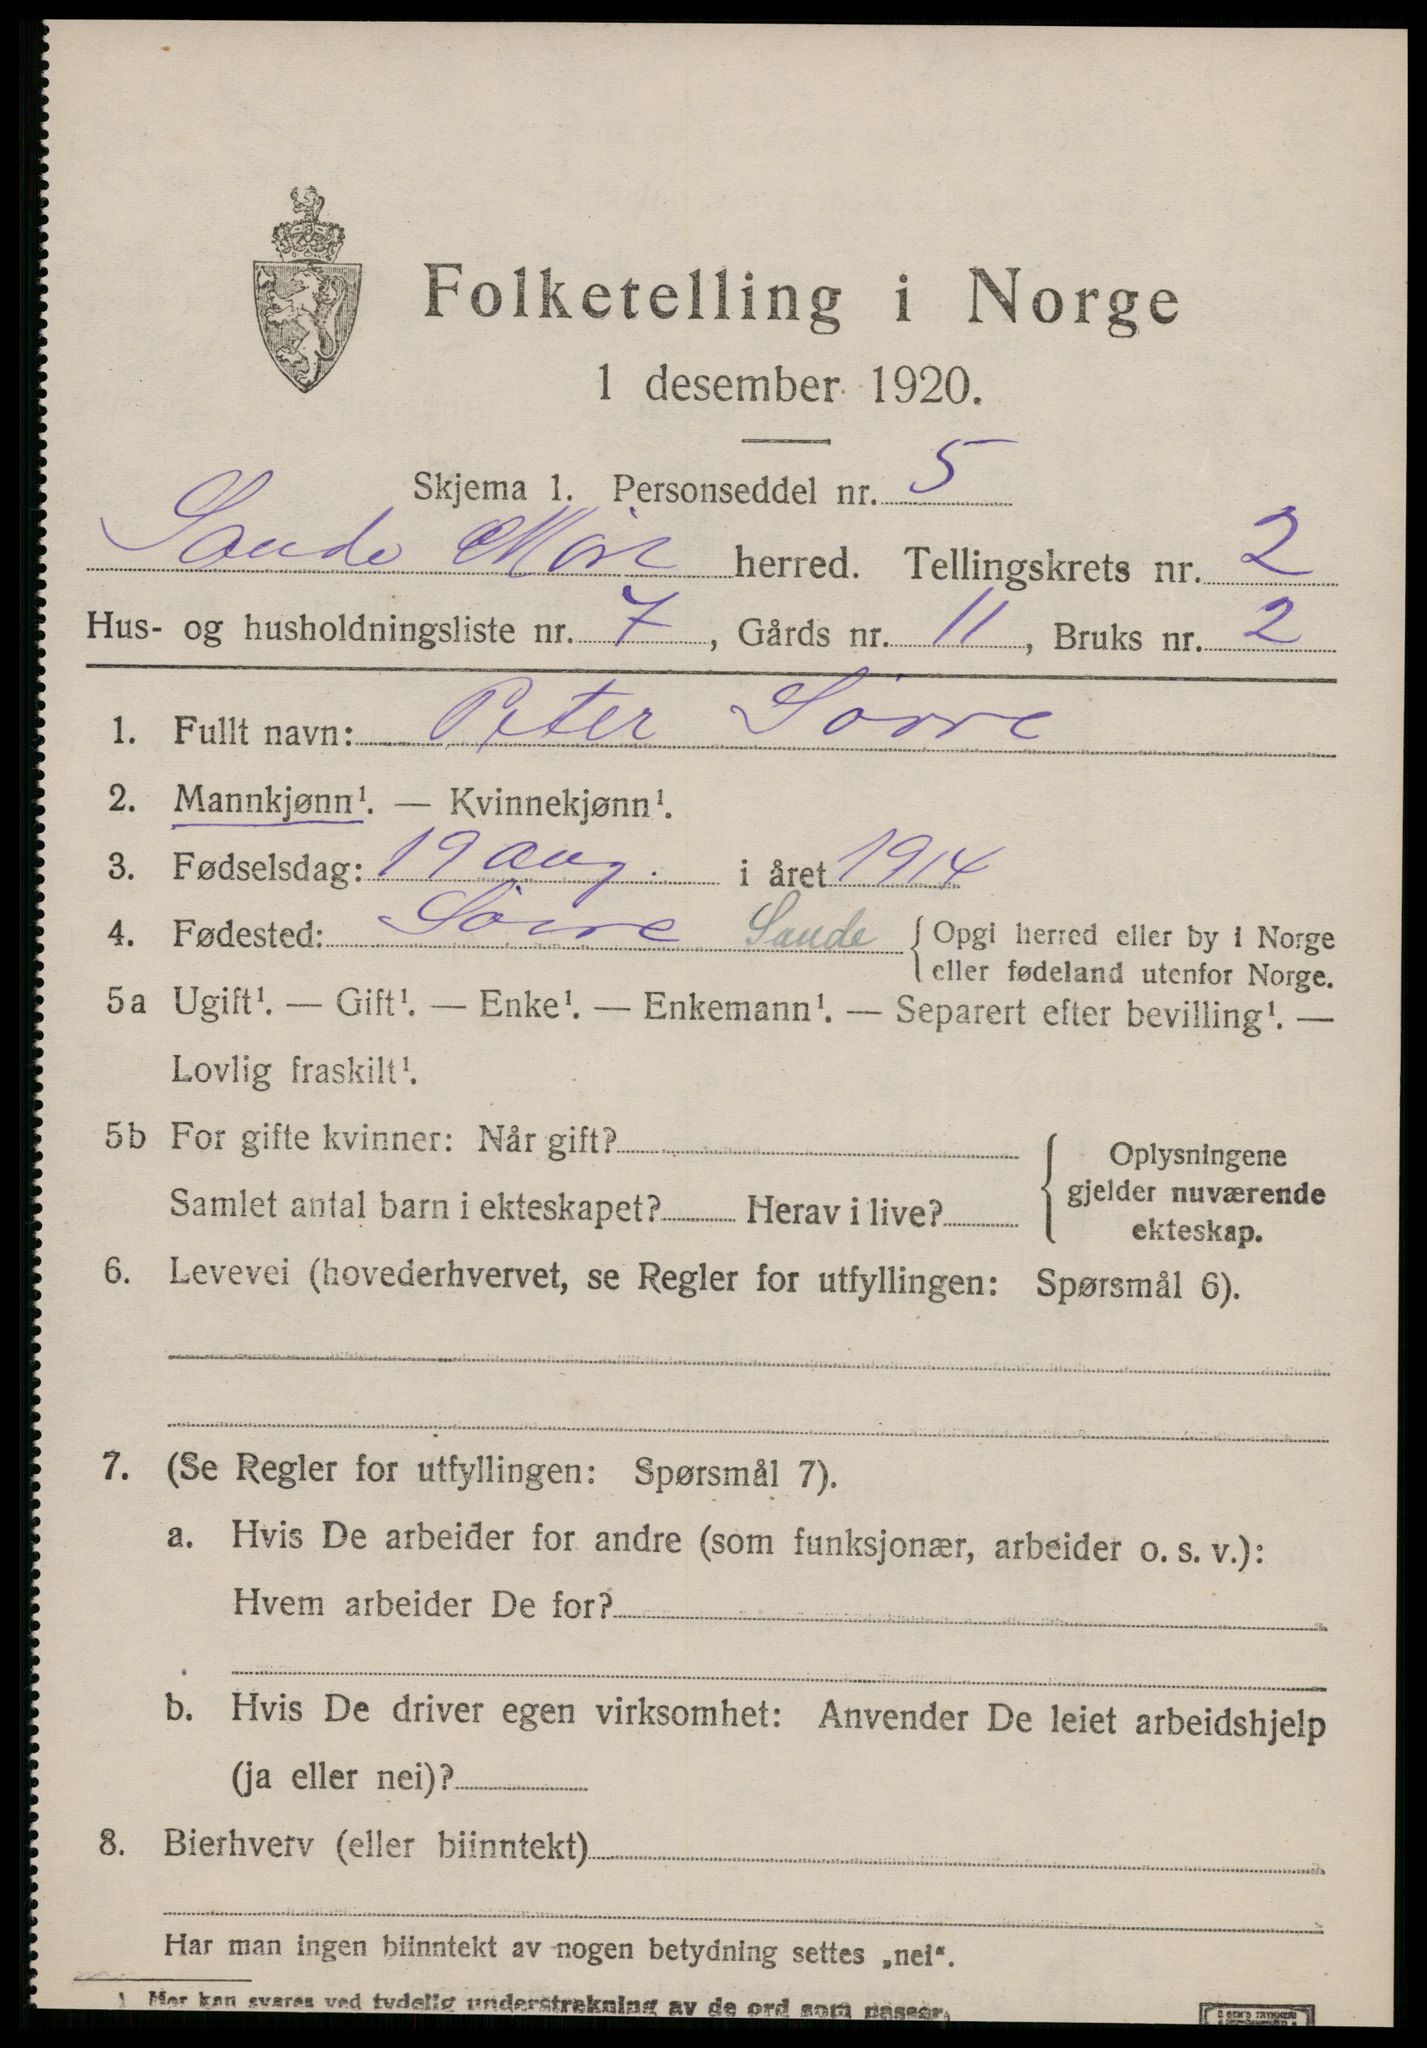 Folketelling i Norge
1 desember 1920.
Skjema 1. Personseddel nr. 5
Sande Möre herred. Tellingskrets nr. 2
Hus- og husholdningsliste nr. 7, Gårds nr. 11, Bruks nr. 2
1. Fullt navn: Peter Sörre
2. Mannkjønn¹. — Kvinnekjønn¹.
3. Fødselsdag: 19 aug. i året 1914
4. Fødested: Sörre Sande { Opgi herred eller by i Norge
eller fødeland utenfor Norge.
5a Ugift¹. — Gift¹. — Enke¹. — Enkemann¹. — Separert efter bevilling¹. —
Lovlig fraskilt¹.
5b For gifte kvinner: Når gift?
Samlet antal barn i ekteskapet? Herav i live?
{ Oplysningene
gjelder nuværende
ekteskap.
6. Levevei (hovederhvervet, se Regler for utfyllingen: Spørsmål 6).
7. (Se Regler for utfyllingen: Spørsmål 7).
a. Hvis De arbeider for andre (som funksjonær, arbeider o. s. v.):
Hvem arbeider De for?
b. Hvis De driver egen virksomhet: Anvender De leiet arbeidshjelp
(ja eller nei)?
8. Bierhverv (eller biinntekt)
Har man ingen biinntekt av nogen betydning settes „nei“.
1 Her kan svares ved tydelig understrekning av de ord som passer.